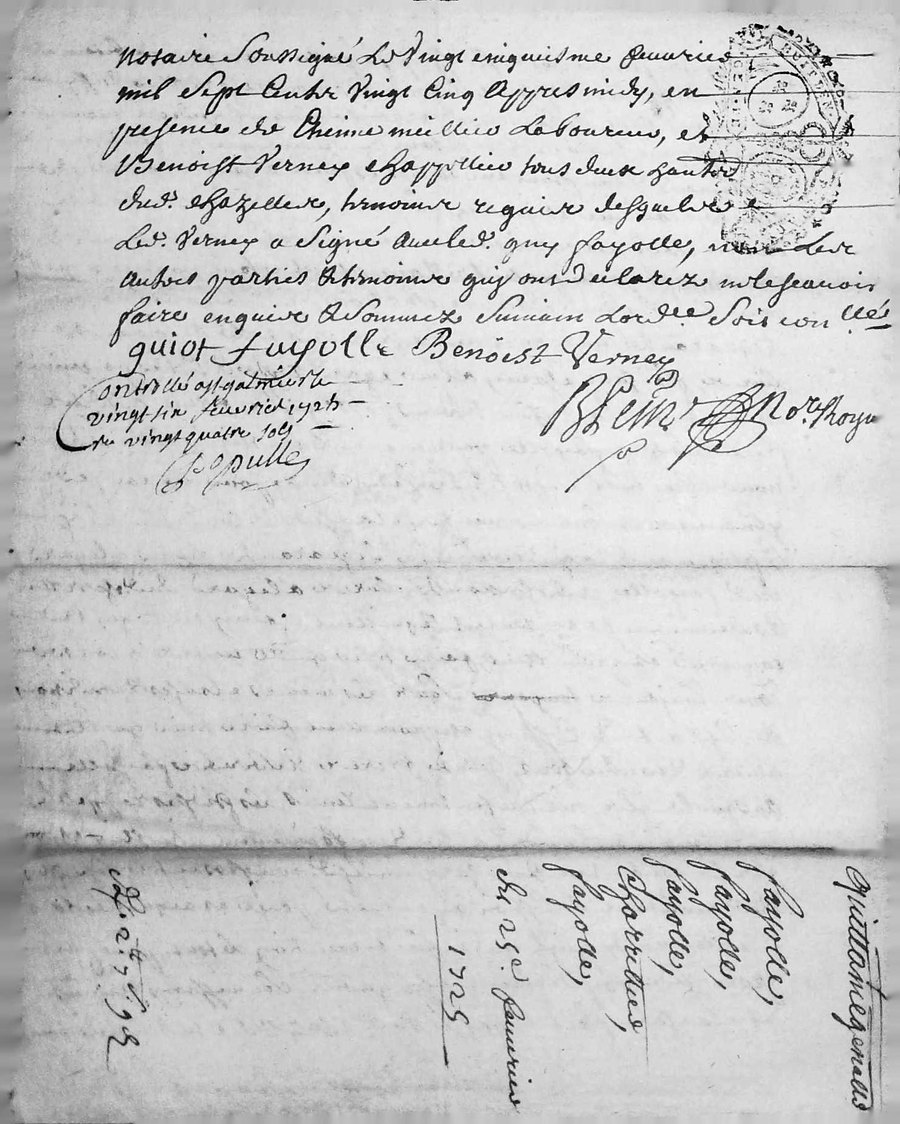 notaire Soussigné Le Vingt cinquiesme feuvrier
mil Sept Cents Vingt Cinq Appres midy, en
presence de Laboureur, et
Benoist Verney chappellier tous deux
dud. chazelles, tesmoins requis desquels
Led. Verney a Signé avec led. guy fayolle, non Les
autres parties & tesmoins quy ont declarez ne le scavoir
faire enquis & Sommez Suivant Lord.ce Sois con.llé
guiot fayolle Benoist Verney
Controllé a st galmier le
vingt six feuvrier 1725
Re vingt quatre sols
No.re Royal
quittance generalle
fayolle,
fayolle,
fayolle,
Charretier,
fayolle,
Du 25e. feuvrier
1725